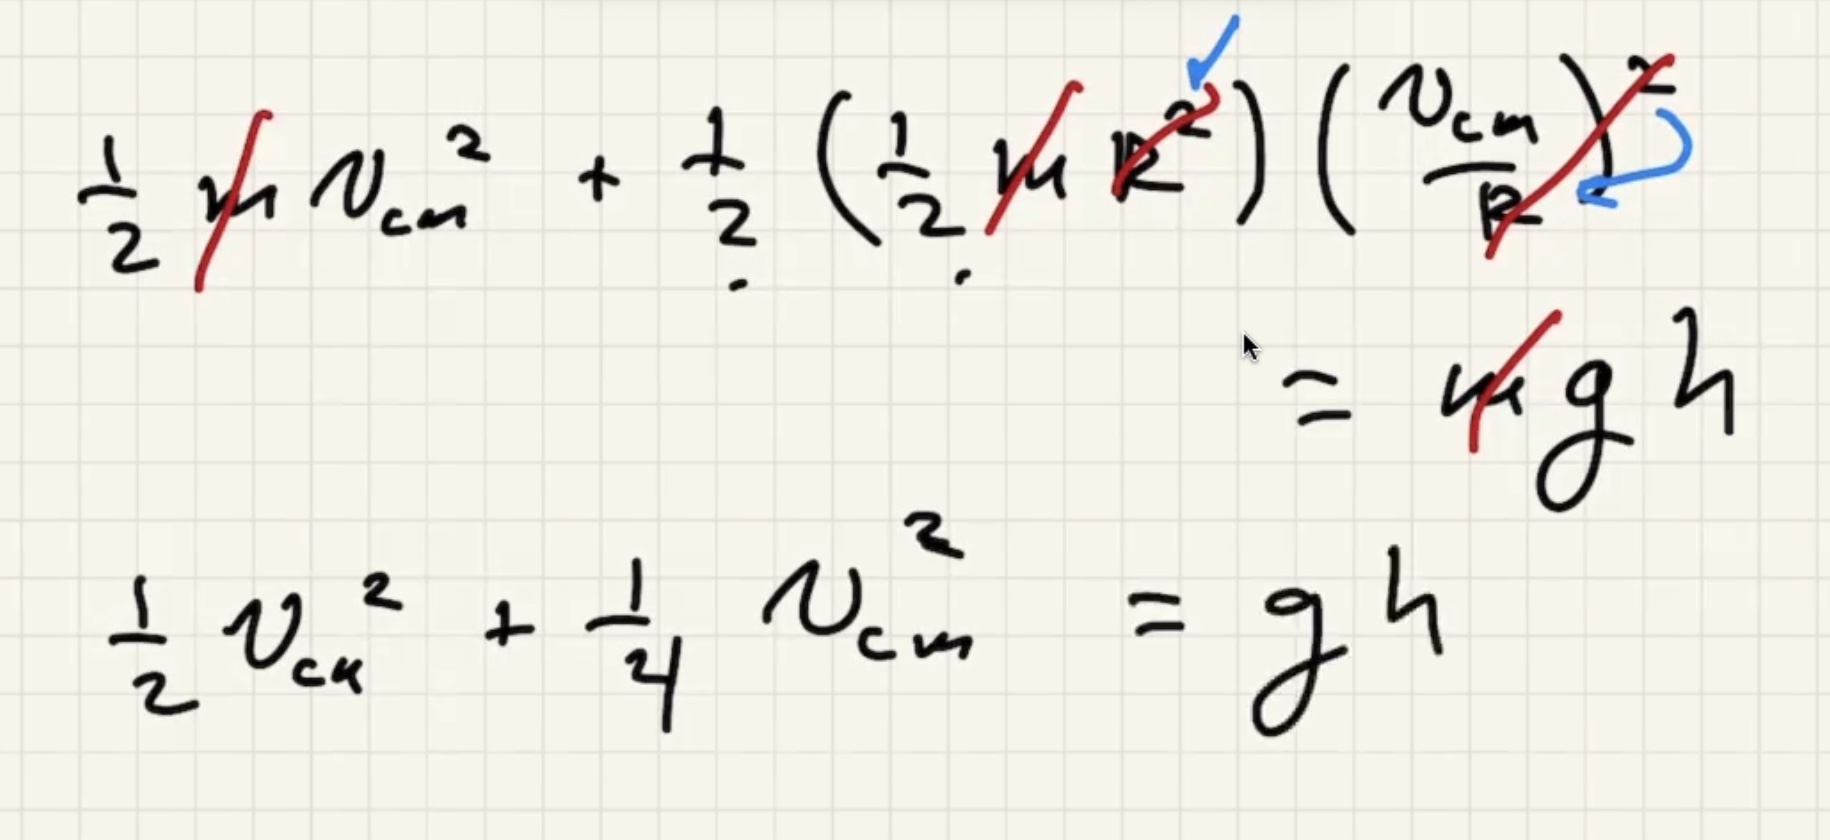 ½ m v_cm² + ½ (½ m R²) (v_cm / R)²
= m g h
½ v_cm² + ¼ v_cm² = g h